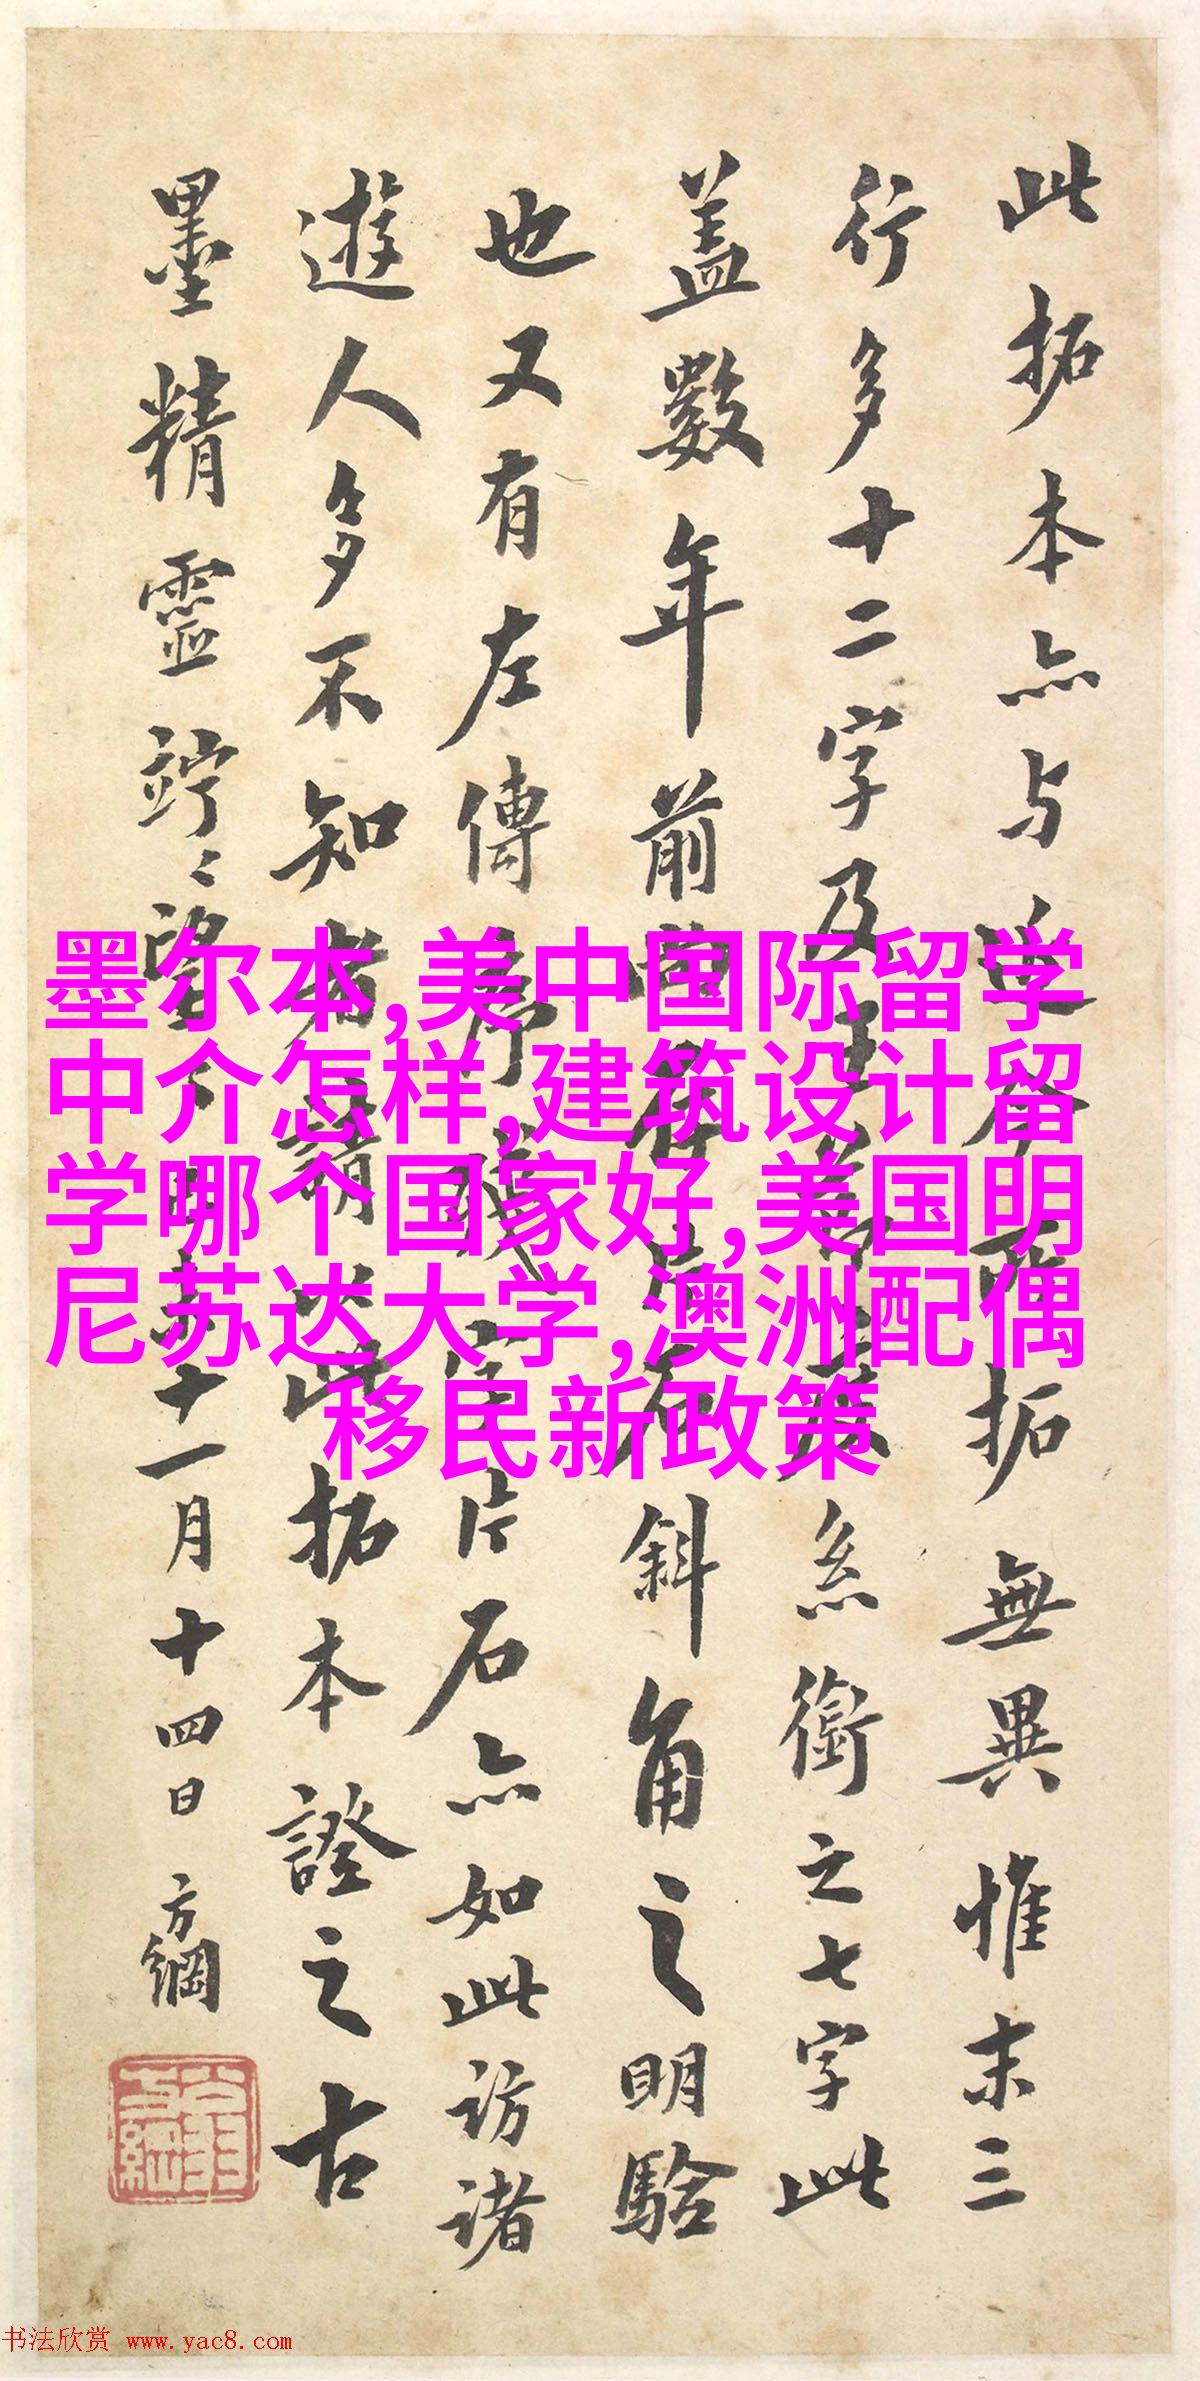 此拓本亦与
拓無異惟末三
行多十二字及
系銜之七字此
蓋數年前
斜角之明驗
也又有左傳序
片石亦如此訪諸
遊人多不知者
此拓本證之古
墨精靈竚〻望
十一月十四日方綱
墨尔本,美中国际留学
中介怎样,建筑设计留
学哪个国家好,美国明
尼苏达大学,澳洲配偶
移民新政策
书法欣赏 www.yac8.com